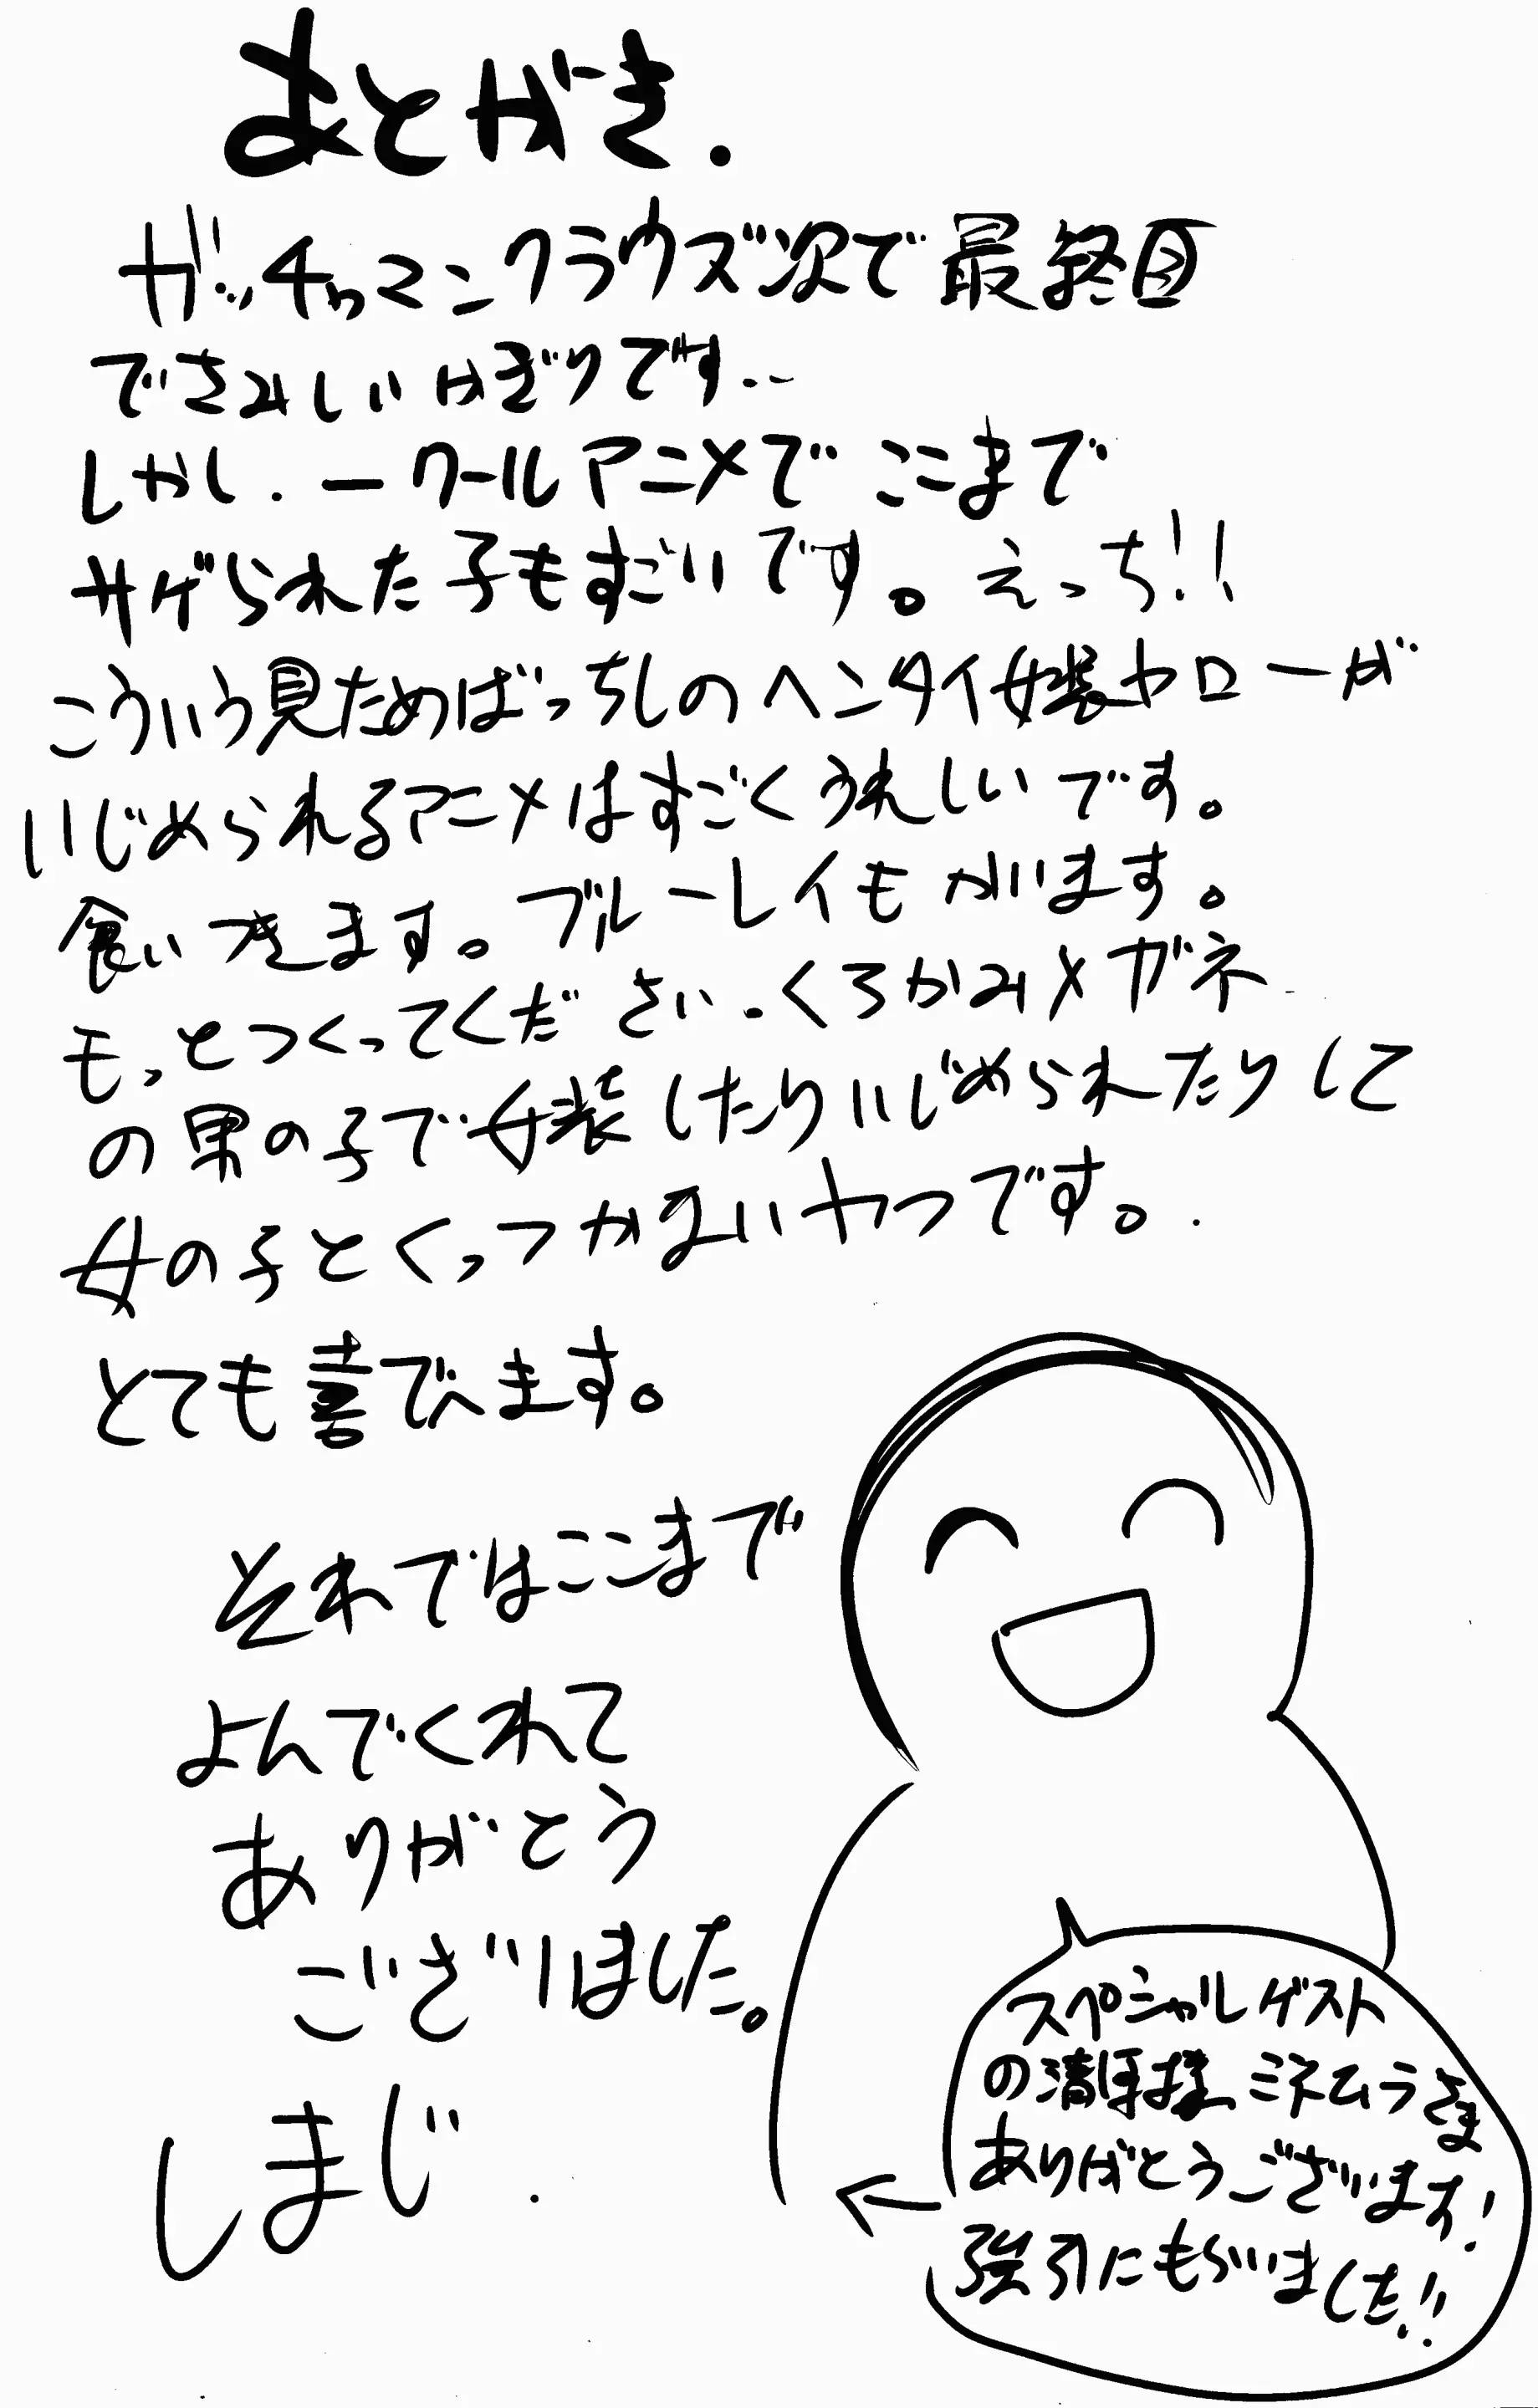 あとがき.
ガッチャマンクラウズ次で最終回
でさみしいかぎりです..
しかし.一クールアニメでここまで
サゲられた子もすごいです。えっち!!
こういう見ためばっちしのヘンタイ女装ヤローが
いじめられるアニメはすごくうれしいです。
食いつきます。ブルーレイもかいます。
もっとつくってください.くろかみメガネ
の男の子で女装したりいじめられたりして
女の子とくっつかないヤツです。
とても喜びます。
それではここまで
よんでくれて
ありがとう
ございました。
しまじ.
スペシャルゲスト
の清様 ミネムラさま
ありがとうございます!
強引にもらいました!!